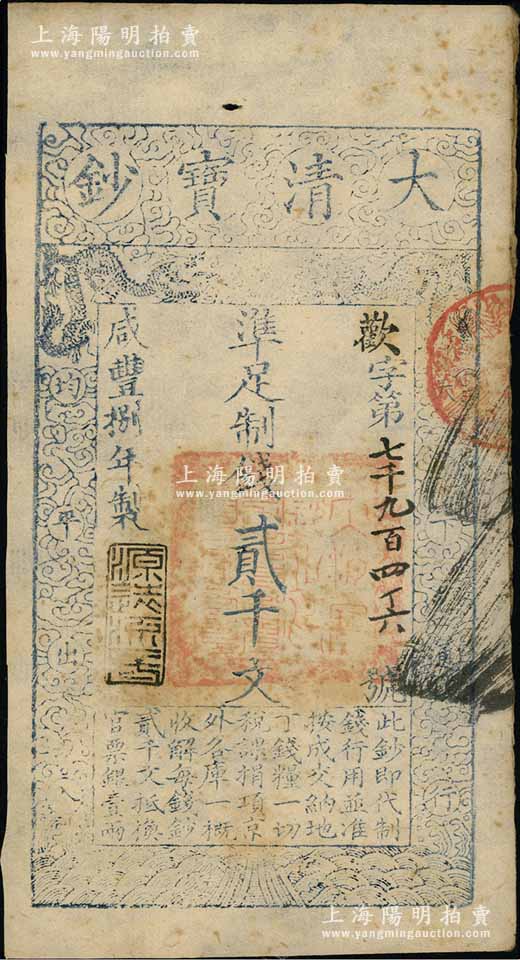 上海陽明拍賣
www.yangmingauction.com
大清寶鈔
歡字第七千九百四十六號
準足制錢貳千文
咸豐捌年製
均平出入
行
此鈔即代制
錢行用並准
按成交納地
丁錢糧一切
稅課捐項京
外各庫一概
收解每錢鈔
貳千文抵換
官票銀壹兩
上海陽明拍賣
www.yangmingauction.com
上海陽明拍賣
www.yangmingauction.com